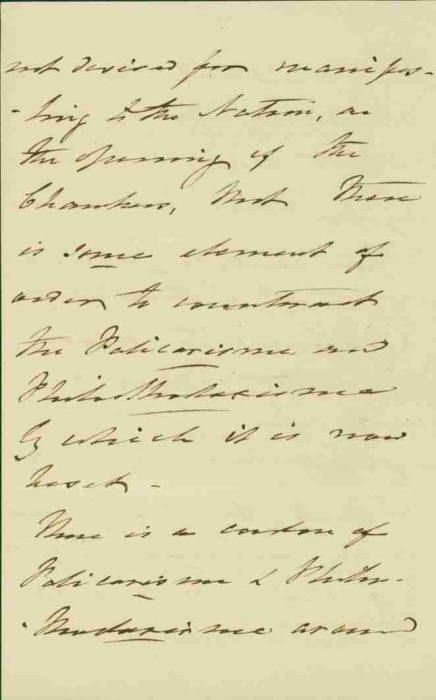 not devised for manifes-
-ting to the Nation, on
the opening of the
Chambers, that there
is some element of
order to counteract
the Policarisme and
Philorthodoxisme
by which it is now
beset -
There is a cordon of
Policarisme & Philor-
-thodoxisme around